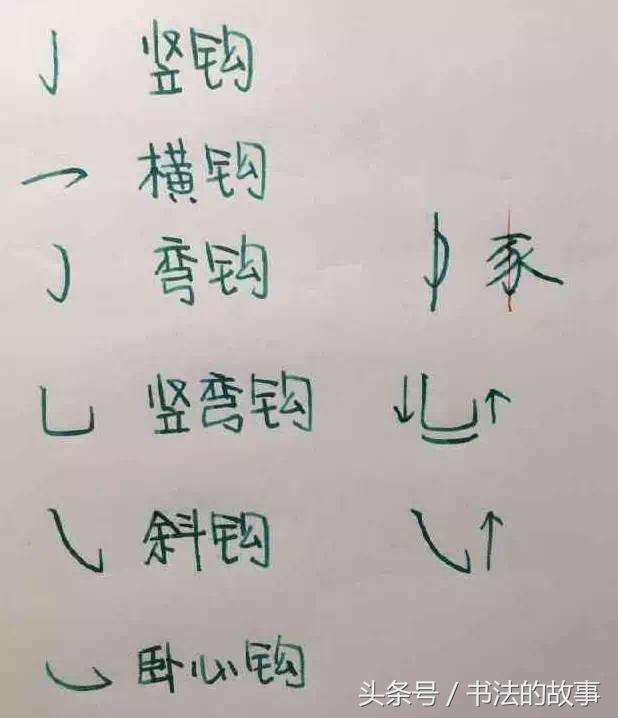 亅 竖钩
㇖ 横钩
㇁ 弯钩 豕
乚 竖弯钩
㇂ 斜钩
㇃ 卧心钩
头条号 / 书法的故事